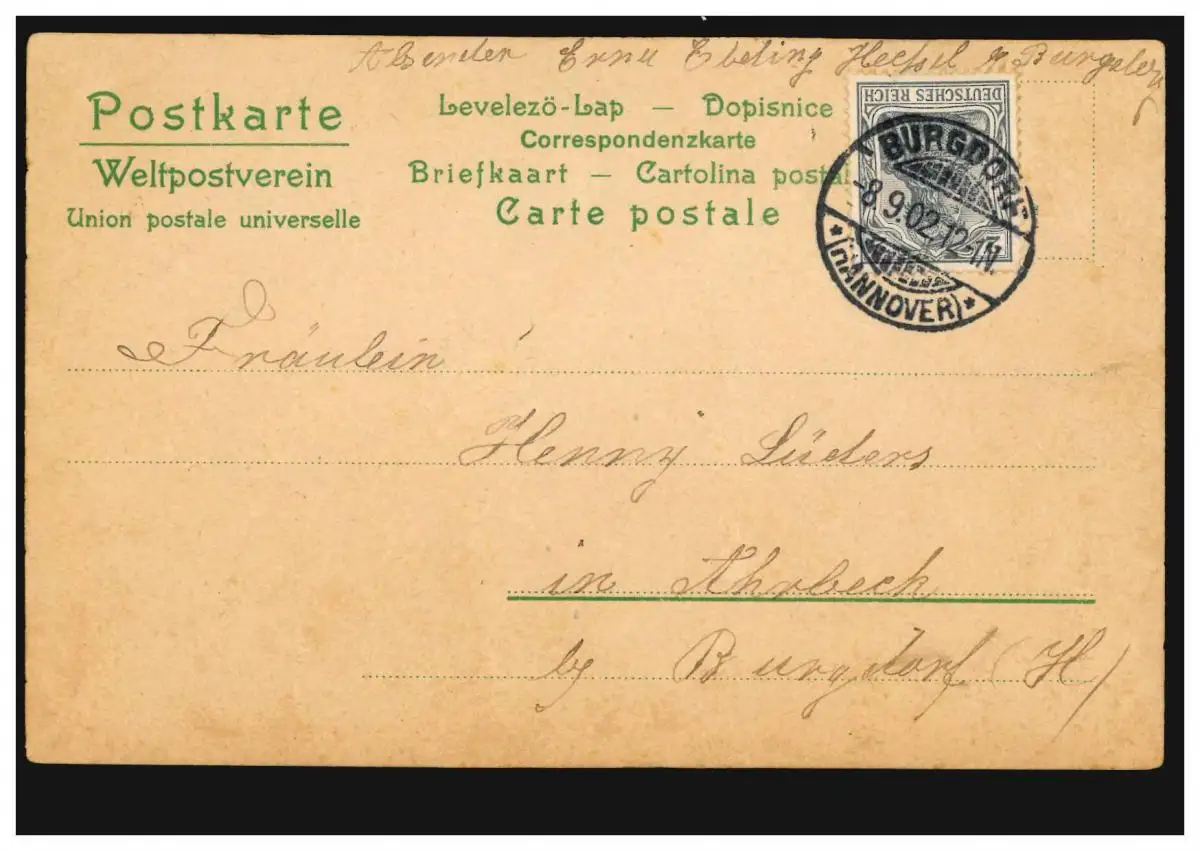 Absender Erna Ebeling Heessel b/ Burgdorf
Postkarte
Weltpostverein
Union postale universelle
Levelezö-Lap — Dopisnice
Correspondenzkarte
Briefkaart — Cartolina postal
Carte postale
DEUTSCHES REICH
2
BURGDORF
-8.9.02.12-1N.
* (HANNOVER) *
Fräulein
Henny Lüders
in Ahrbeck
by Burgdorf (H)